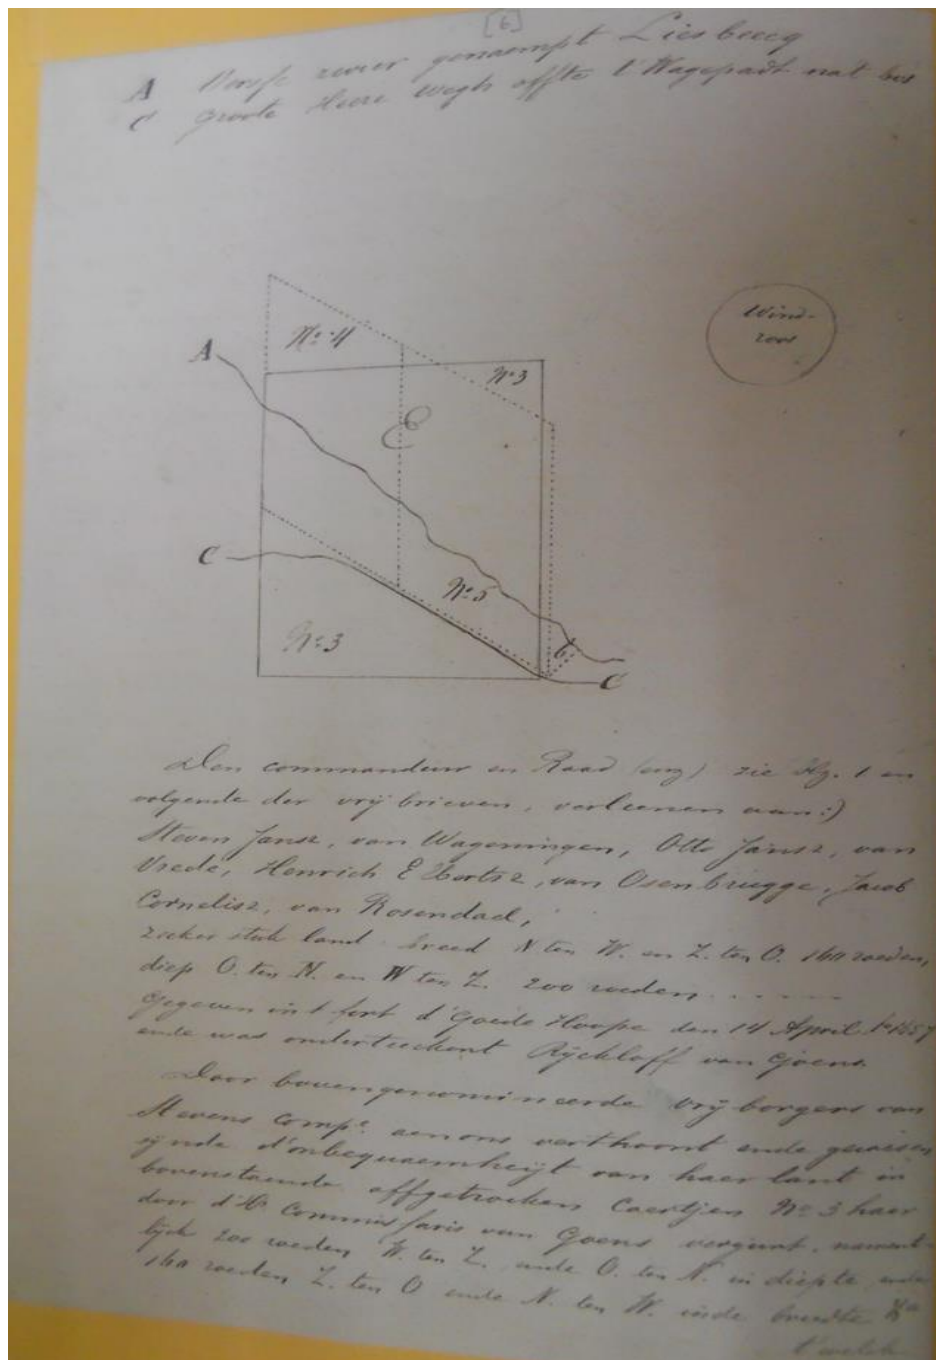 [6]
A Versse rivier genaempt Liesbeecq
C groote Heere wegh offte t' Wagepadt nat bos
A
No. 4
No 3
Wind-
roos
E
C
No. 5
No. 3
6
C
Den commandeur en Raad (enz) zie blz. 1 en
volgende der vrijbrieven, verleenen aan:)
Steven Jansz, van Wageningen, Otto Jansz, van
Vrede, Henrich Elbertsz, van Osenbrugge, Jacob
Cornelisz, van Rosendael,
zeeker stuk land breed N ten W. en Z. ten O. 160 roeden,
diep O. ten N. en W ten Z. 200 roeden
Gegeven in t fort d' Goede Hoope den 14 April Ao 1657
ende was onderteeckent Rijckloff van Goens.
Door bovengenomineerde vrijborgers van
Stevens compe. aen ons verthoont ende gewesen
sijnde d'onbequaemheijt van haer lant in
bovenstaende affgetrocken Caertjen No. 3 haer
door d'Hr Commissaris van Goens vergunt, nament-
lijck 200 roeden W. ten Z. ende O. ten N. in diepte ende
160 roeden Z. ten O ende N. ten W. inde breedte
t welck